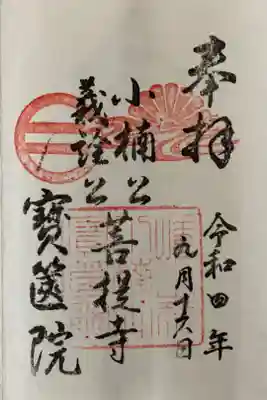 奉拜
令和四年
九月十六日
小楠公
義詮公
菩提寺
寶筐院